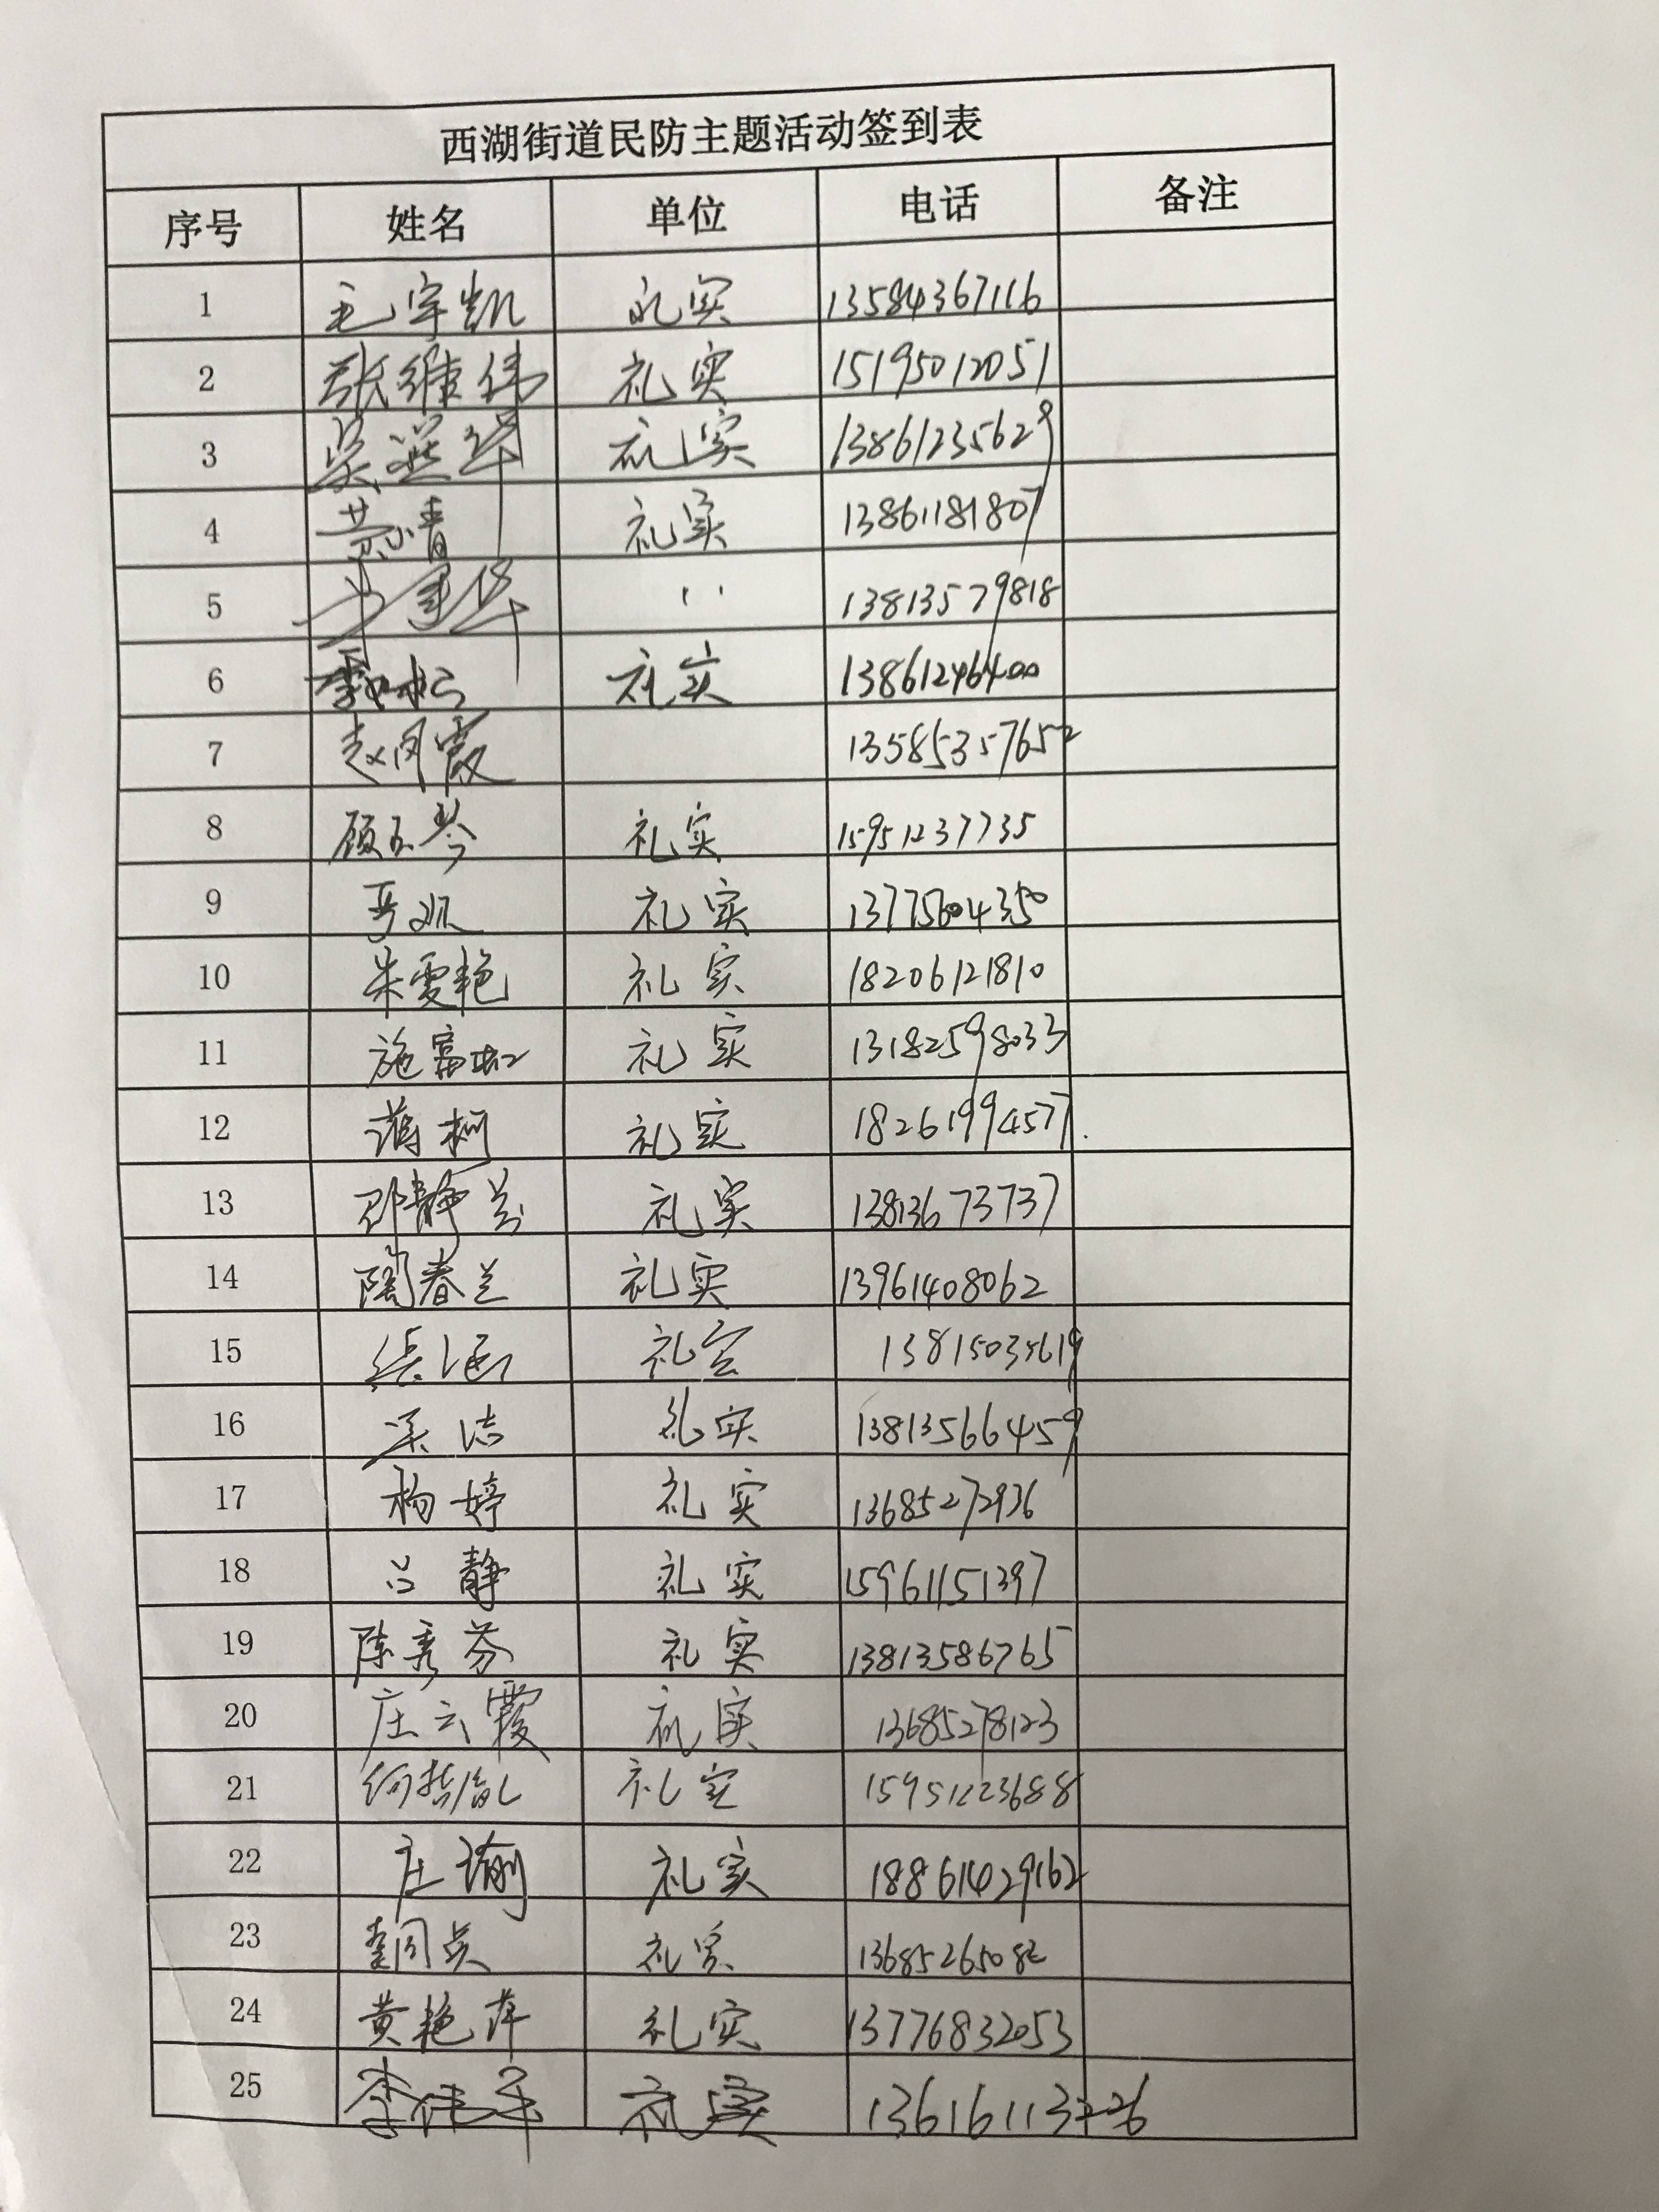 西湖街道民防主题活动签到表
序号 姓名 单位 电话 备注
1 毛宇凯 礼实 13584367116
2 张维伟 礼实 15195012051
3 礼实 13861235629
4 黄小青 礼实 13861181807
5 〃 13813579818
6 礼实 13861246400
7 赵凤霞 13585357652
8 顾玉琴 礼实 15951237735
9 礼实 13775604350
10 朱雯艳 礼实 18206121810
11 施富虹 礼实 13182598033
12 蒋柯 礼实 18261994577.
13 邵静芳 礼实 13813673737
14 陶春兰 礼实 13961408062
15 礼实 13815035619
16 礼实 13813566459
17 杨婷 礼实 13685272936
18 吕静 礼实 15961151397
19 陈秀芬 礼实 13813586765
20 庄云霞 礼实 13685278123
21 礼实 15951223688
22 庄瑜 礼实 188614029162
23 礼实 13685265082
24 黄艳萍 礼实 13776832053
25 李伟平 礼实